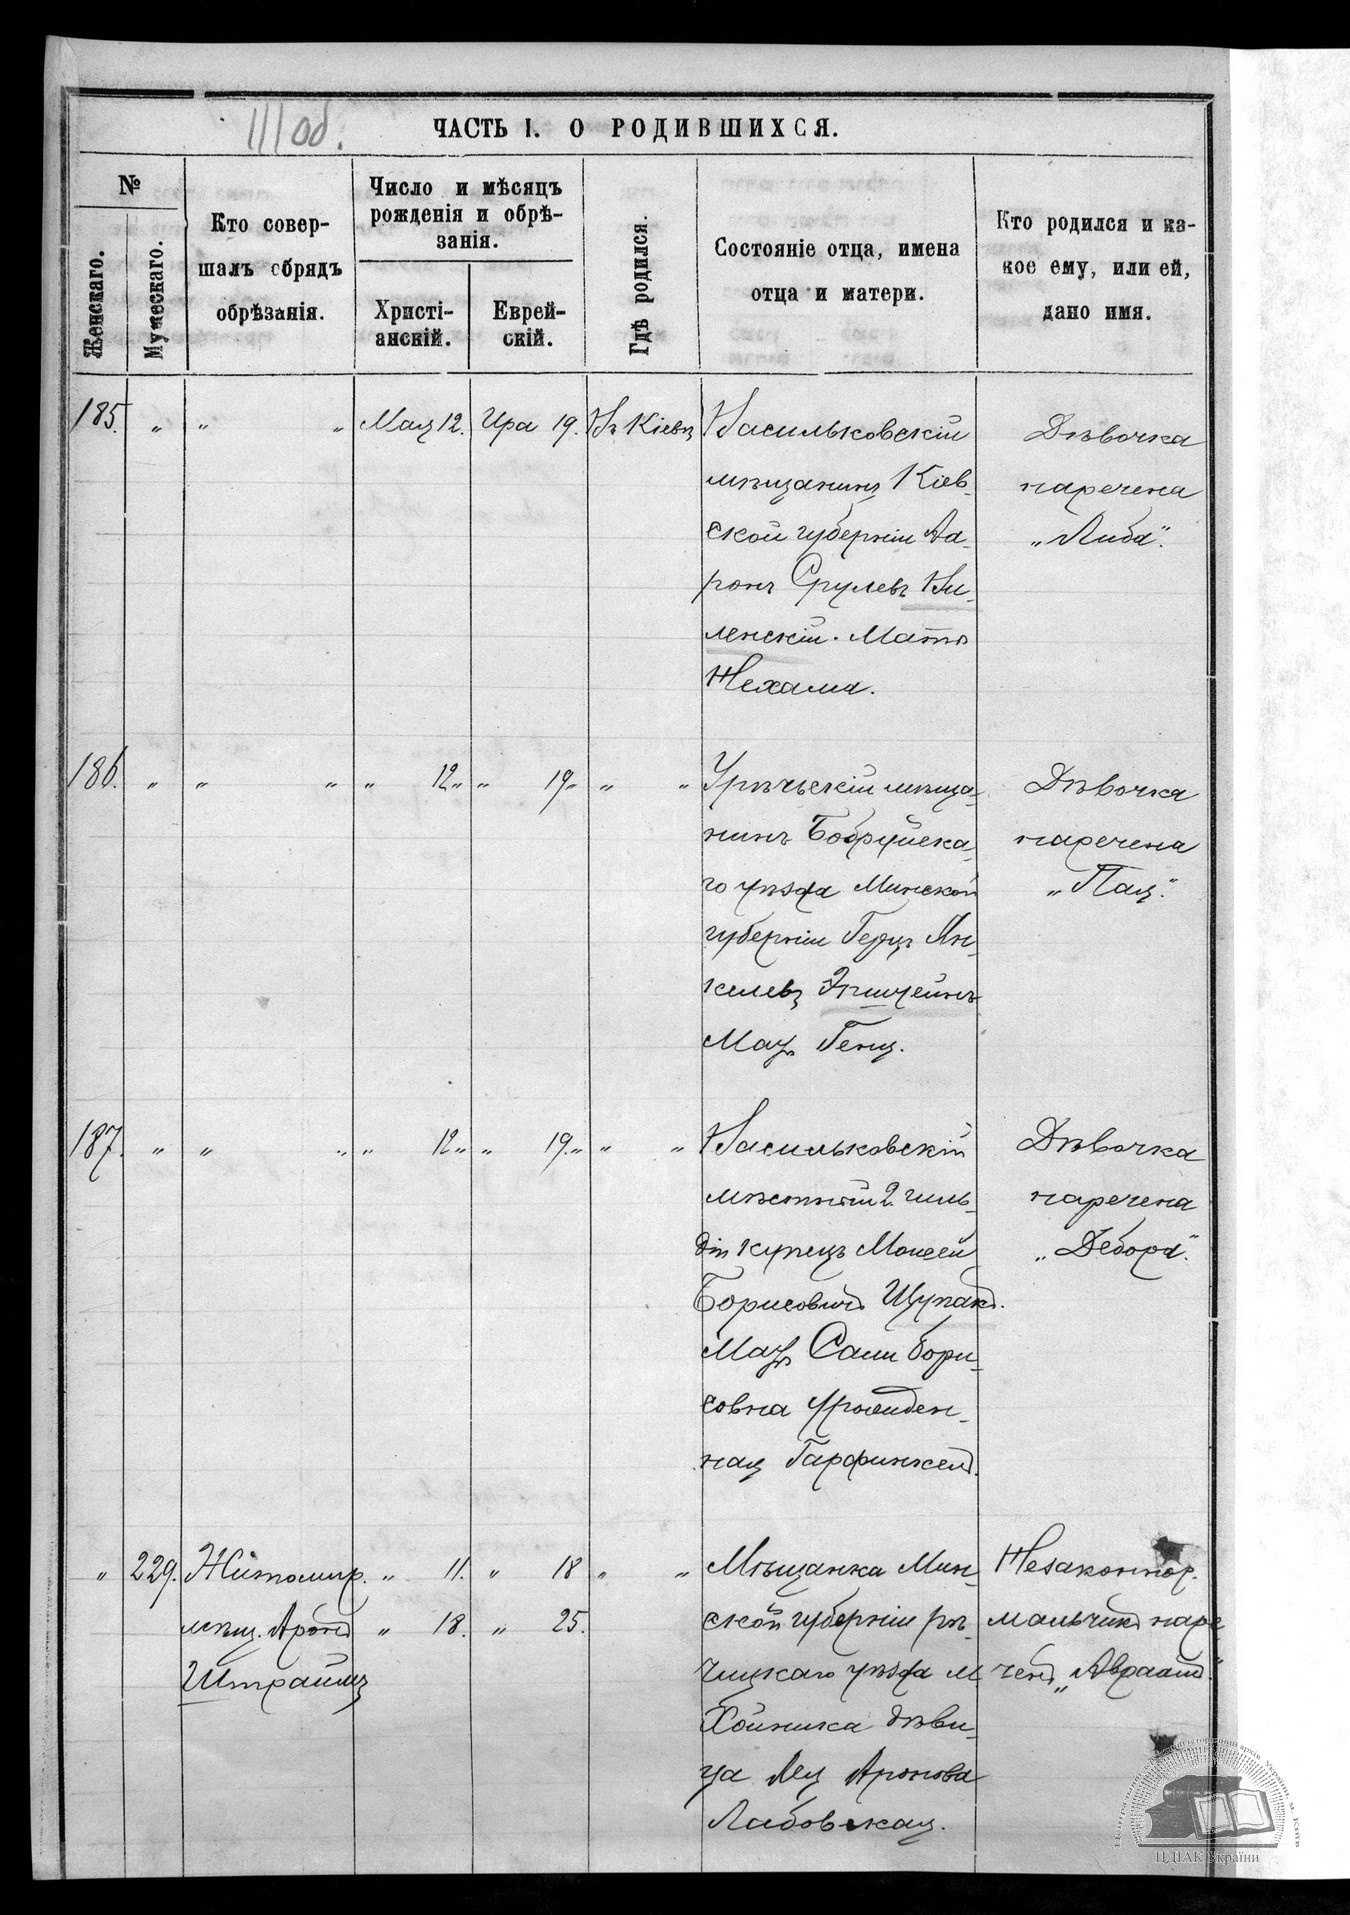 111 об.
ЧАСТЬ I. О РОДИВШИХСЯ.
№
Женскаго.
Мужескаго.
Кто совер-
шалъ обрядъ
обрѣзанія.
Число и мѣсяцъ
рожденія и обрѣ-
занія.
Христі-
анскій.
Еврей-
скій.
Гдѣ родился.
Состояніе отца, имена
отца и матери.
Кто родился и ка-
кое ему, или ей,
дано имя.
185. „ „ „ Мая 12. Ира 19. Въ Кіевѣ
Васильковскій
мѣщанинъ Кіев-
ской губерніи Аа-
ронъ Срулевъ Ви-
ленскій. Мать
Нехама.
Дѣвочка
наречена
„Либа".
186. „ „ „ „ 12 „ „ 19 „ „ „
Урѣчьскій мѣща-
нинъ Бобруйска-
го уѣзда Минской
губерніи Герцъ Ян-
келевъ Эпштейнъ
Мать Геня.
Дѣвочка
наречена
„Пая".
187. „ „ „ „ 12 „ „ 19 „ „ „
Васильковскій
мѣстный 2 гиль-
діи купецъ Моисей
Борисовичъ Щупакъ.
Мать Сали Бори-
совна урожден-
ная Гарфинкель.
Дѣвочка
наречена
„Дебора".
„ 229. Житомир. „ 11. „ 18 „ „
мѣщ. Аронъ „ 18. „ 25.
Штраймъ
Мѣщанка Мин-
ской губерніи рѣ-
чицкаго уѣзда М
Хойника дѣви-
ца Лея Аронова
Либовская.
Незаконнор.
мальчикъ наре-
ченъ „Авраамъ".
ЦДІАК України